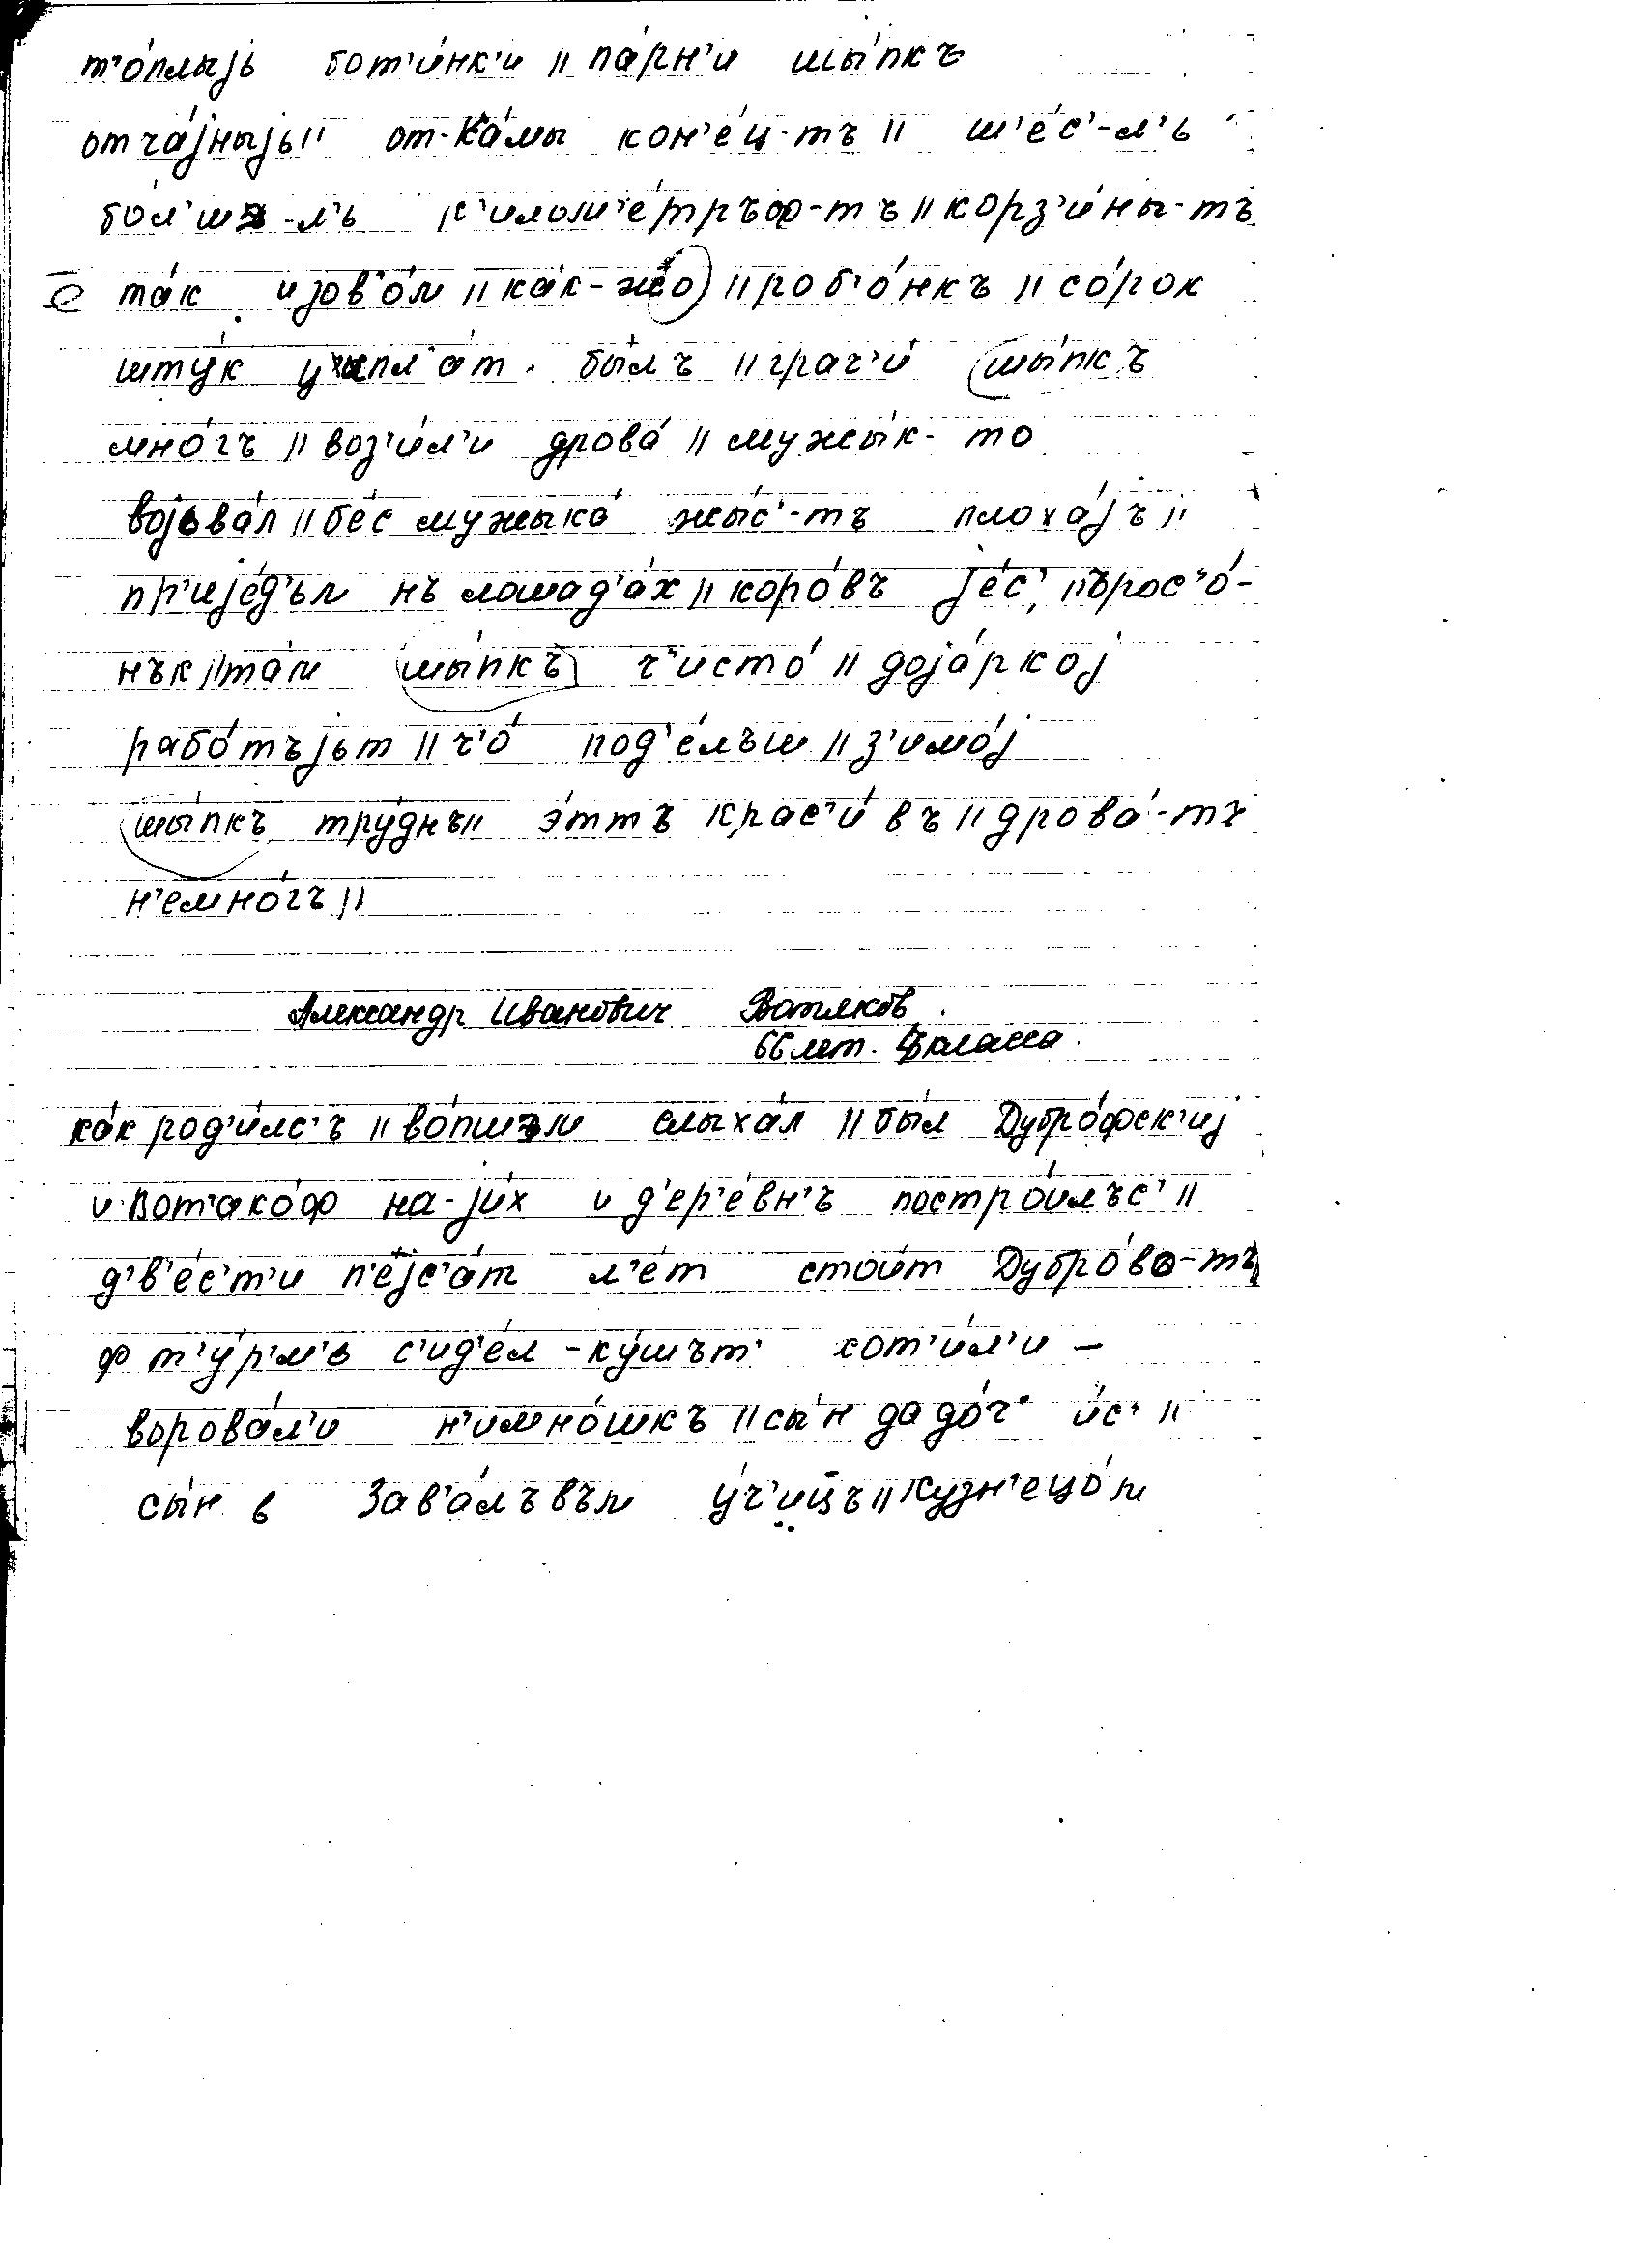 т'о́плыjь бот'и́нк'и || па́рн'и шы́пкъ
отча́jныjь || от-Ка́мы кон'е́ц-тъ || ш'е́с'-л'ь
бо́л'ш -л'ь к'илом'е́тръф-тъ || корз'и́ны-тъ
та́к иjов'о́м || ка́к-жо || роб'о́нкъ || со́рок
шту́к бы́лъ || грач'и́ шы́пкъ
мно́гъ || воз'и́л'и дрова́ || мужы́к- то
воjьва́л || бес мужыка́ жы́с'-тъ плоха́jъ ||
пр'иjе́д'ьм нъ лошад'а́х || коро́въ jе́с', пърос'о́-
нък || та́м шы́пкъ ч'исто́ || доjа́ркоj
рабо́тъjьт || ч'о́ под'е́лъш || з'имо́j
шы́пкъ тру́днъ || э́ттъ крас'и́въ || дрова́-тъ
н'емно́гъ ||
Александр Иванович Вотяков.
66 лет. 4 класса.
ка́к род'и́лс'ъ || во́пшэм слыха́л || бы́л Дубро́фск'иj
и Вот'ако́ф на-jи́х и д'ер'е́вн'ъ постро́илъс' ||
д'в'е́с'т'и п'еjс'а́т л'е́т стои́т Дубро́во-тъ
ф т'у́р'м'ь с'ид'е́л - ку́шът' хот'и́л'и -
ворова́л'и н'имно́шкъ || сы́н да до́ч' йс' ||
сы́н в Зав'а́лъвъм у́ч'иц̄ъ || Кузн'ецо́м